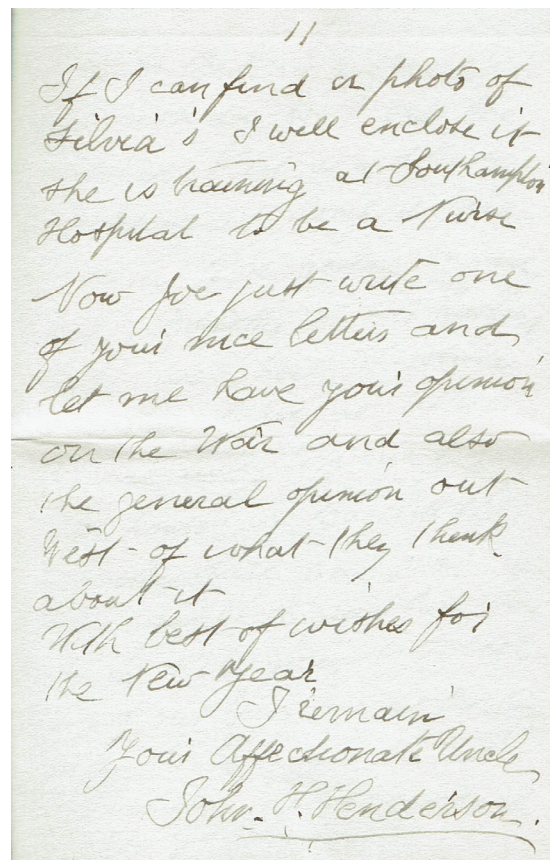 11
If I can find a photo of
Silvia's I will enclose it
she is training at Southampton
Hospital to be a Nurse
Now Joe just write one
of your nice letters and
let me have your opinion
on the War and also
the general opinion out
West - of what they think
about it
With best of wishes for
the New Year
I remain
Your Affectionate Uncle
John. H. Henderson.